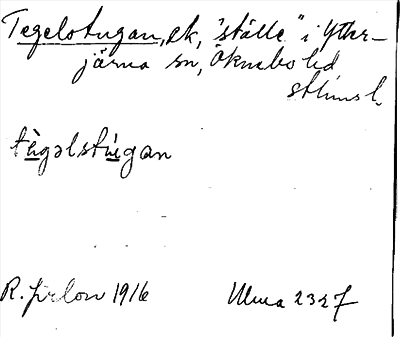 Tegelstugan, ek, "ställe" i Ytter-
järna sn, Öknebo hd
sthlms l.
tègəlstùgan
R. 1916 Ulma 2327